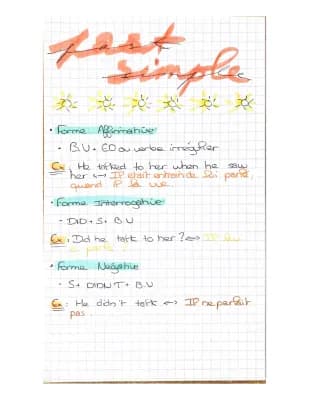 past
simple
• Forme Affirmative
- B.V + ED ou verbe irrégulier
Ex : He talked to her when he saw
her ↔ Il était entrain de lui parlé
quand il la vue.
• Forme Interrogative
- DID + S + B.V
Ex : Did he talk to her ? ↔ Il lui
a parlé ?
• Forme Négative
- S + DIDN'T + B.V
Ex : He didn't talk ↔ Il ne parlait
pas.